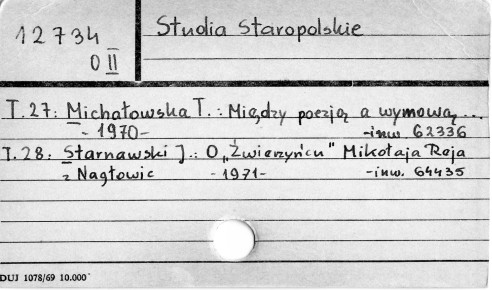 12734
O II
Studia Staropolskie
T. 27: Michałowska T.: Między poezją a wymową...
- 1970 - - inw. 62336
T. 28: Starnawski J.: O „Źwierzyńcu" Mikołaja Reja
z Nagłowic - 1971 - - inw. 64435
DUJ 1078/69 10.000